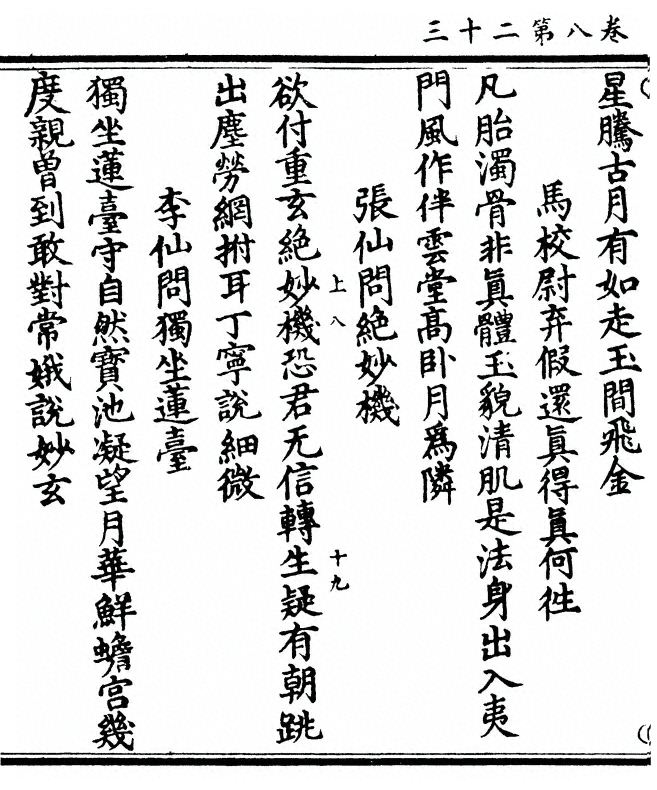 三十二第八卷
星騰古月有如走玉間飛金
馬校尉弃假還眞得眞何徃
凡胎濁骨非眞體玉貌清肌是法身出入夷
門風作伴雲堂髙卧月爲隣
張仙問絶妙機
上八
十九
欲付重玄絶妙機恐君无信轉生疑有朝跳
出塵勞網拊耳丁寧說細微
李仙問獨坐蓮臺
獨坐蓮臺守自然寶池凝望月華鮮蟾宫幾
度親曾到敢對常娥說妙玄